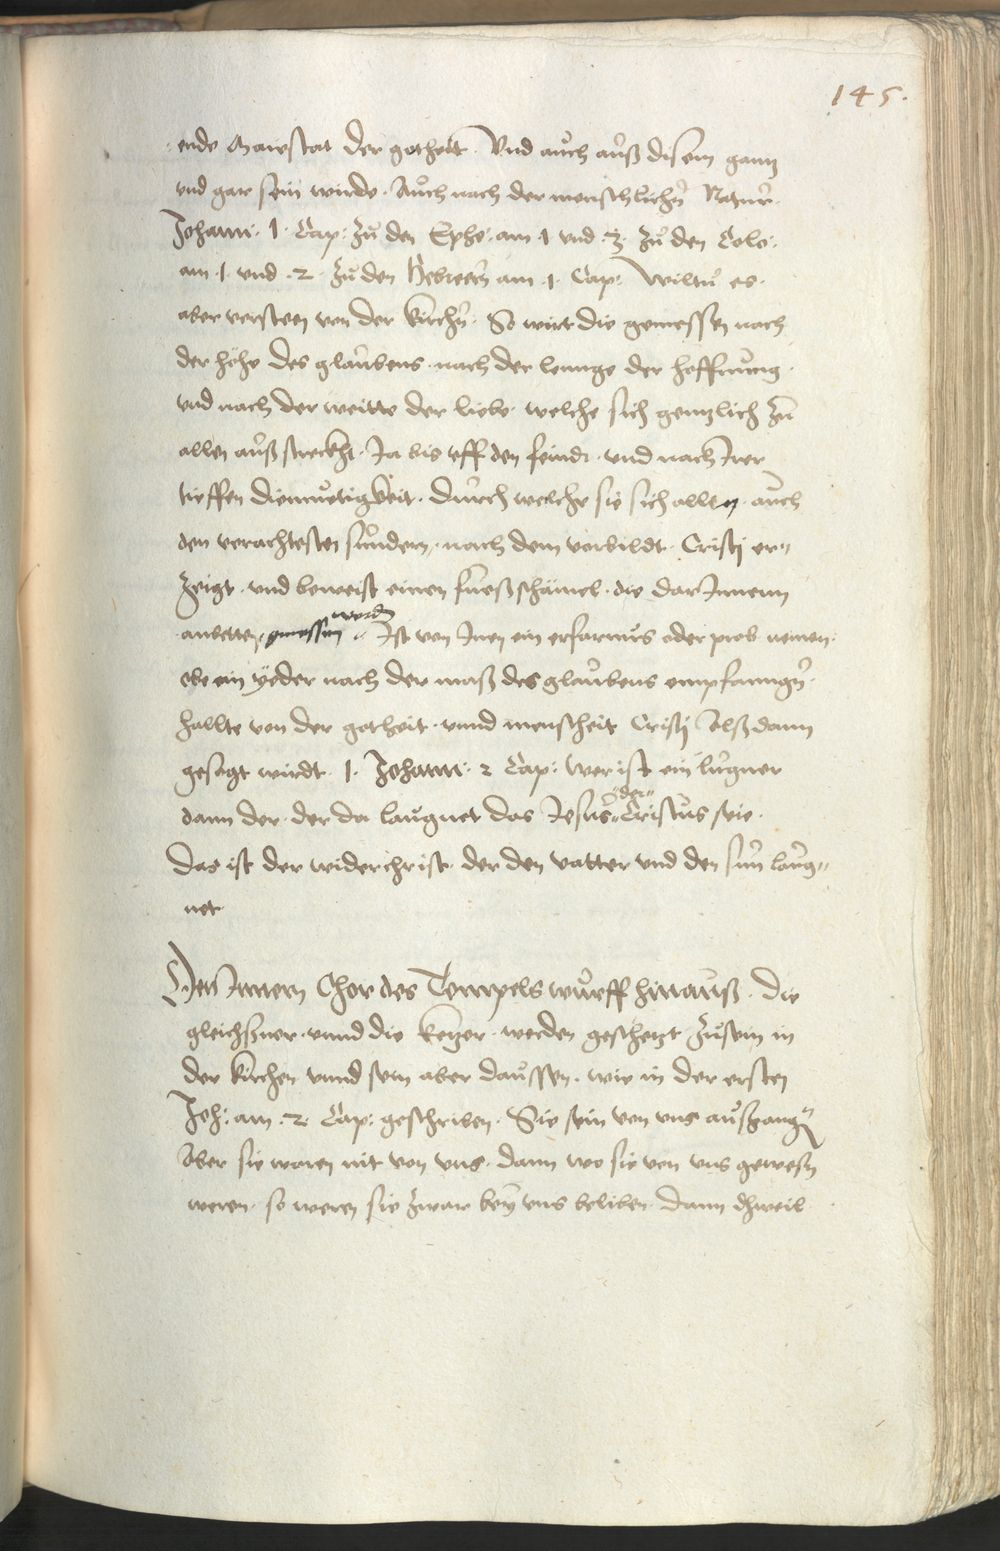 145.
ende Maiestat der gotheit. Vnd auch auß disem gantz
vnd gar sein wirde. Auch nach der menschlichen Natur.
Johann. 1. Cap: Zu den Ephe. am 1 vnd .3. Zu den Colo:
am .1. vnd .2. Zu den Hebreern am .1. Cap: Wiltu es
aber versteen von der kirchen. So wirt die gemessen nach
der höhe des glaubens. nach der lennge der hoffnung.
vnd nach der weitte der liebe. welche sich genntzlich zu
allen auß streckht. Ja bis vff den feindt. vnd nach irer
tieffen diemuetigkeit. durch welche sie sich allen auch
den verachtesten sündern. nach dem vorbildt. Cristi er„
zeigt. vnd beweist einen fueßschämel. die dar Innenn
anbetten, gemessen werden Ist von Inen ein erfarnus oder prob nemen.
obe ein yeder nach der maß des glaubens empfanngen.
hallte von der gotheit. vnnd menscheit Cristi Alß dann
gesagt wirdt. 1. Johann. 2 Cap: Wer ist ein lügner
dann der. der da laugnet das Jesus „der„ Cristus seie.
Das ist der widerchrist. der den vatter vnd den sun laug„
net
Den Innern Chor des Tempels wurff hinauß. die
gleichßner. vnnd die ketzer. werden geschetzt zusein in
der kirchen vnnd sein aber daussen. wie in der ersten
Joh: am .2. Cap: geschriben. Sie sein von vns außgangen
Aber sie waren nit von vns. dann wo sie von vns gewesen
weren. so weren sie zwar bey vns beliben. dann dhweil